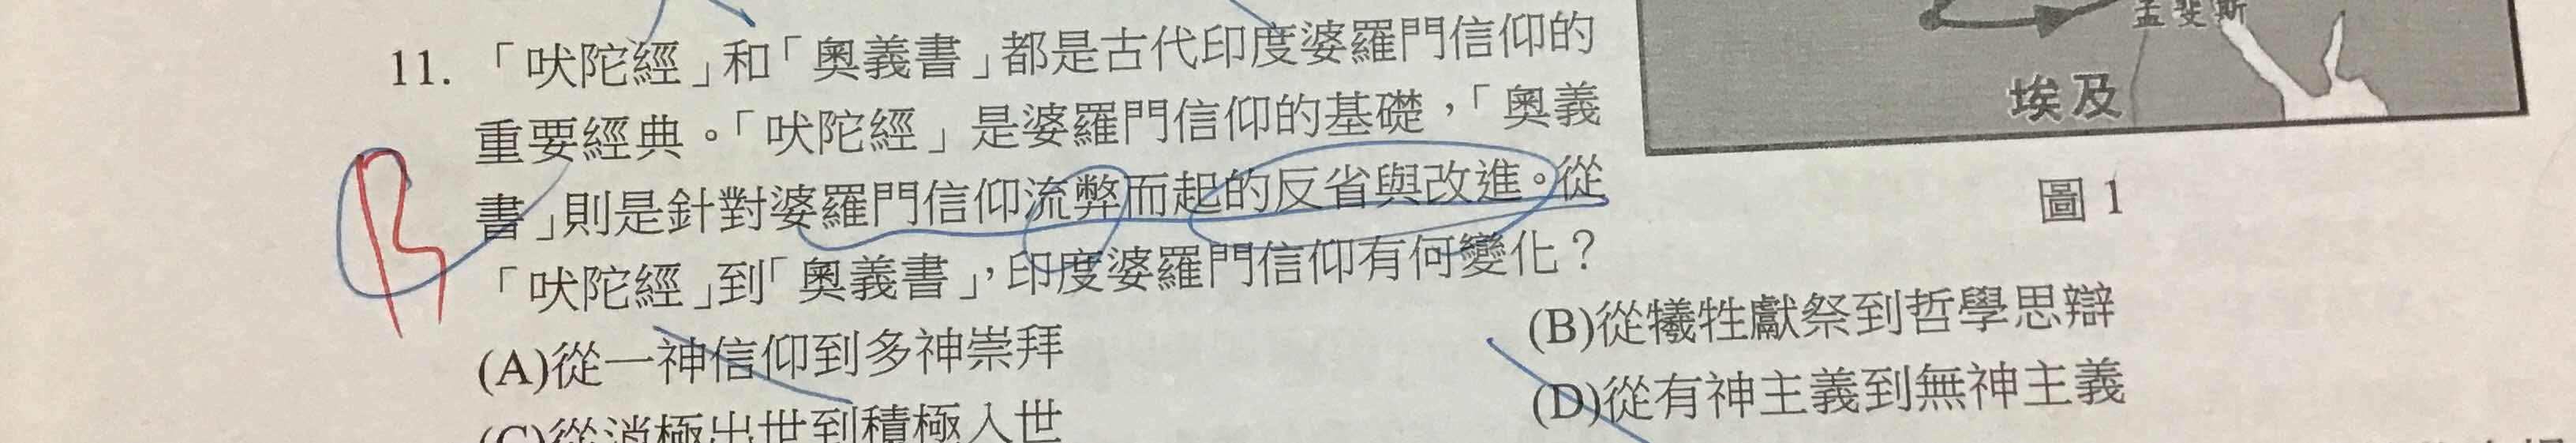 11. 「吠陀經」和「奧義書」都是古代印度婆羅門信仰的
重要經典。「吠陀經」是婆羅門信仰的基礎，「奧義
書」則是針對婆羅門信仰流弊而起的反省與改進。從
「吠陀經」到「奧義書」，印度婆羅門信仰有何變化？
(A)從一神信仰到多神崇拜
(B)從犧牲獻祭到哲學思辯
(C)從消極出世到積極入世
(D)從有神主義到無神主義
孟斐斯
埃及
圖 1